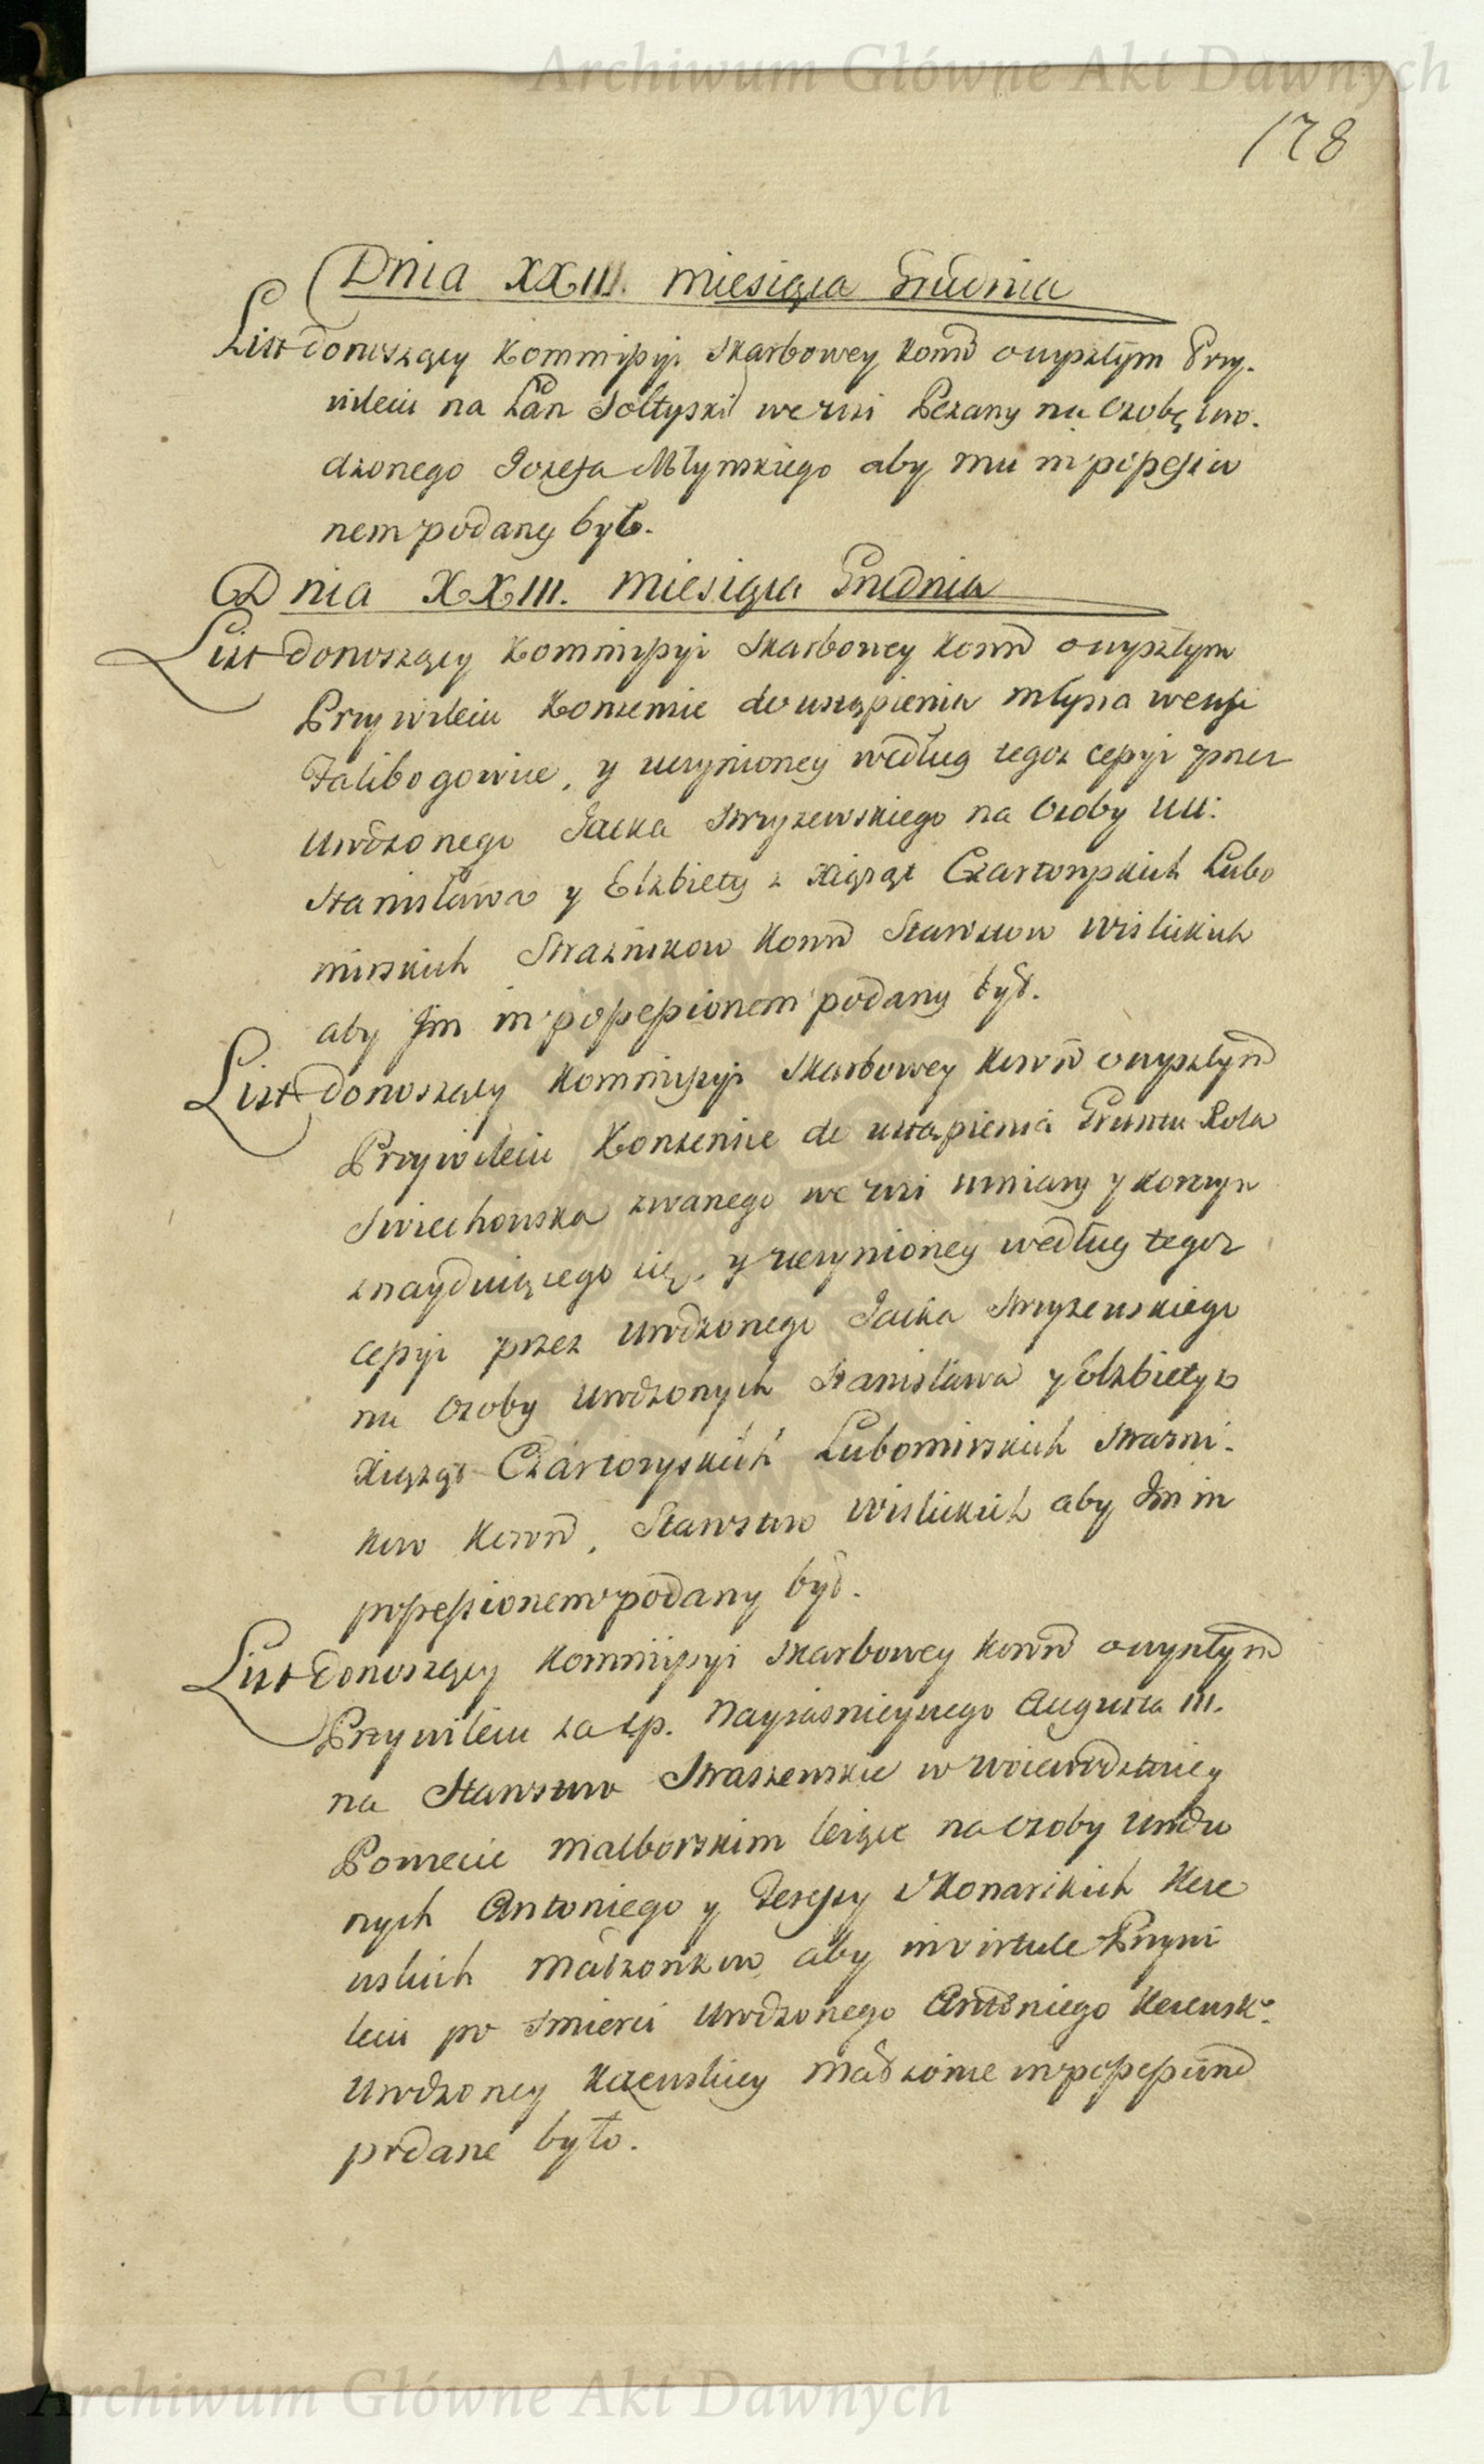 Archiwum Główne Akt Dawnych
178
Dnia XXIII. Miesiąca Grudnia
List donoszący Kommissyi Skarbowey Koron̄ o wyszłym Przy-
wileiu na Łan Sołtyski we wsi Bezany na Osobę Uro-
dzonego Jozefa Młynskiego aby mu in possessio
nem podany był.
Dnia XXIII. Miesiąca Grudnia
List donoszący Kommissyi Skarbowey Koron̄ o wyszłym
Przywileiu Konsensie do ustąpienia młyna we wsi
Falibogowice, y uczynioney według tegoz cessyi przez
Urodzonego Jacka Stryzewskiego na Osoby UU:
Stanisława y Elzbiety z Xiążąt Czartoryskich Lubo
mirskich Straznikow Koron̄ Starostow Wislickich
aby Jm in possessionem podany był.
List donoszący Kommissyi Skarbowey Koron̄ o wyszłym
Przywileiu Konsensie do ustąpienia Gruntu Rola
Swiechowska zwanego we wsi y Korczyn
znayduiącego się, y uczynioney według tegoz
cessyi przez Urodzonego Jacka Stryzewskiego
na Osoby Urodzonych Stanisława y Elzbiety z
Xiążąt Czartoryskich Lubomirskich Strazni-
kow Koron̄, Starostw Wislickich aby Jm in
possessionem podany był.
List donoszący Kommissyi Skarbowey Koron̄ o wyszłym
Przywileiu za sp. Nayiasnieyszego Augusta III.
na Starostwo Straszewskie w Woiewodztwie y
Powiecie Malborskim lezące na Osoby Urodzo
nych Antoniego y Teressy z Konarskich
Małzonkow aby in virtute Przywi
leiu po smierci Urodzonego Antoniego
Urodzoney Małzonce in possessionē
podane było.
Archiwum Główne Akt Dawnych